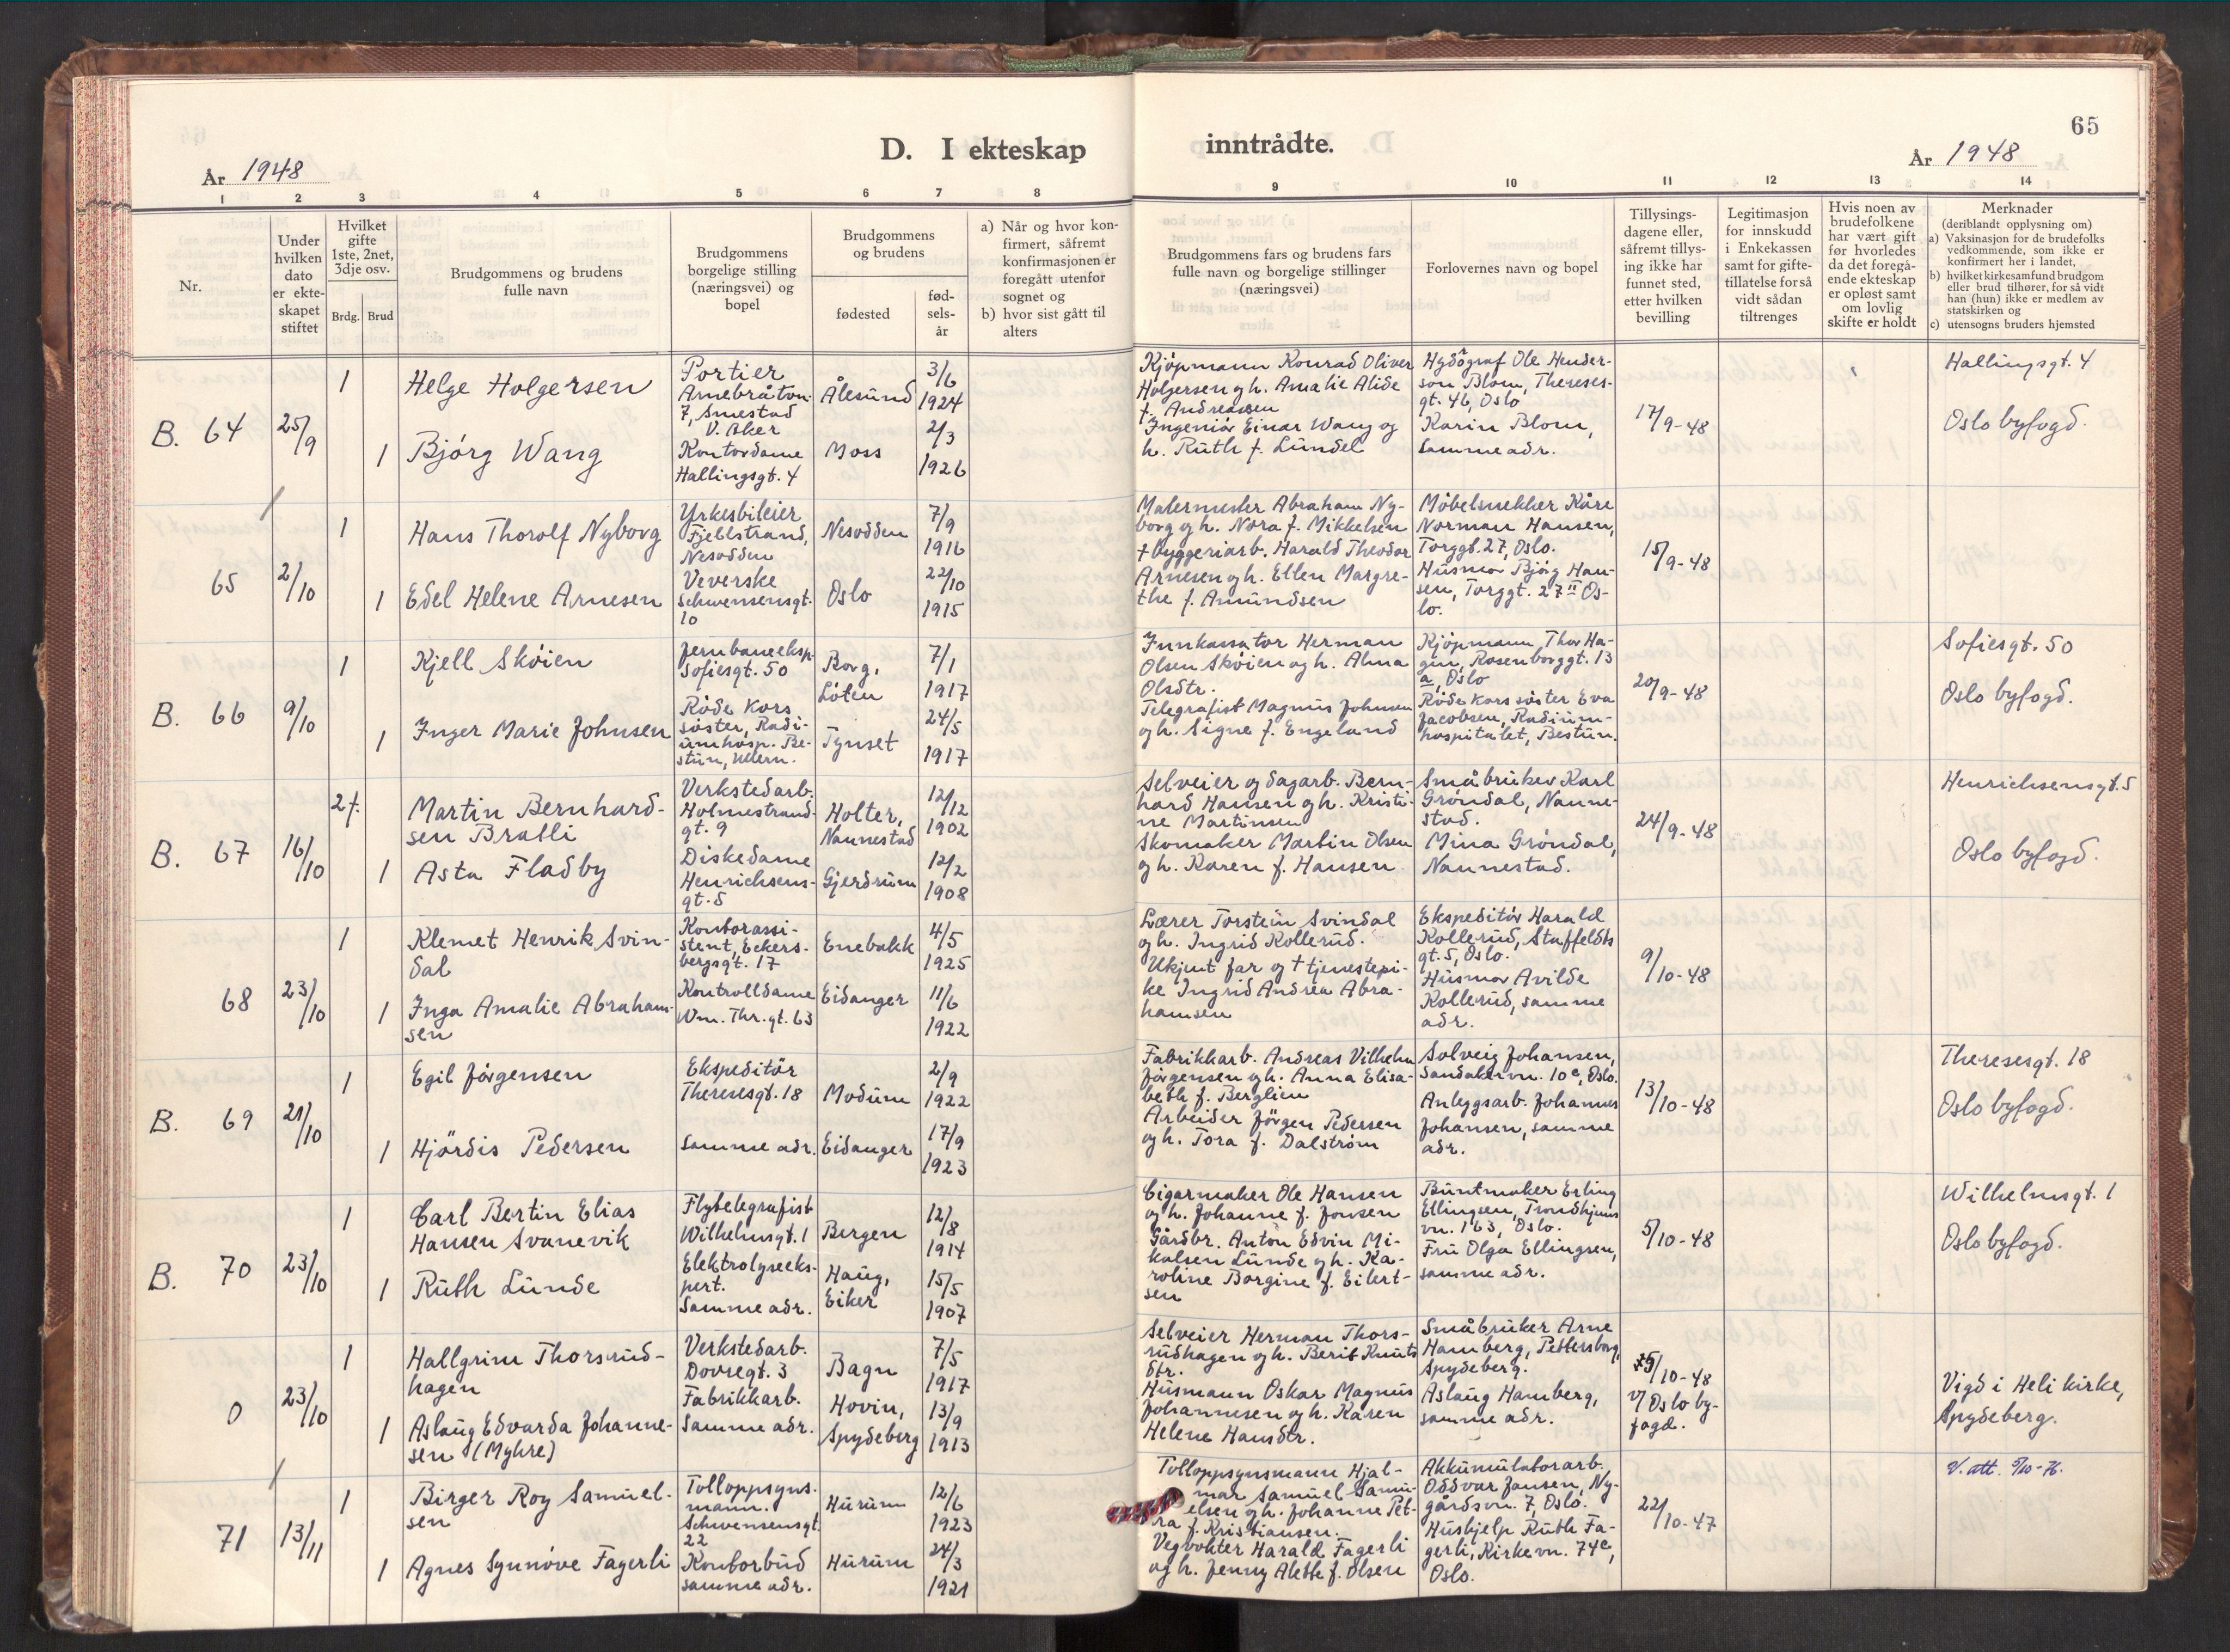 65
D. I ekteskap inntrådte.
År 1948
År 1948
1 2 3 4 5 6 7 8 9 10 11 12 13 14
Nr.
Under
hvilken
dato
er ekte-
skapet
stiftet
Hvilket
gifte
1ste, 2net,
3dje osv.
Brdg. Brud
Brudgommens og brudens
fulle navn
Brudgommens
borgelige stilling
(næringsvei) og
bopel
Brudgommens
og brudens
fødested
fød-
sels-
år
a) Når og hvor kon-
firmert, såfremt
konfirmasjonen er
foregått utenfor
sognet og
b) hvor sist gått til
alters
Brudgommens fars og brudens fars
fulle navn og borgelige stillinger
(næringsvei)
Forlovernes navn og bopel
Tillysings-
dagene eller,
såfremt tillys-
ing ikke har
funnet sted,
etter hvilken
bevilling
Legitimasjon
for innskudd
i Enkekassen
samt for gifte-
tillatelse forså
vidt sådan
tiltrenges
Hvis noen av
brudefolkene
har vært gift
før hvorledes
da det foregå-
ende ekteskap
er opløst samt
om lovlig
skifte er holdt
Merknader
(deriblandt opplysning om)
a) Vaksinasjon for de brudefolks
vedkommende, som ikke er
konfirmert her i landet,
b) hvilket kirkesamfund brudgom
eller brud tilhører, for så vidt
han (hun) ikke er medlem av
statskirken og
c) utensogns bruders hjemsted
B. 64
25/9
1
Helge Holgersen
Portier
Arnebråtvn.
7, Smestad
V. Aker
Ålesund
3/6
1924
1
Bjørg Wang
Kontordame
Hallingsgt. 4
Moss
2/3
1926
Kjøpmann Konrad Oliver
Holgersen og h. Amalie Alide
f. Andreassen
Ingeniør Einar Wang og
h. Ruth f. Lundel
Ole Hender-
son Blom, Thereses-
gt. 46, Oslo
Karin Blom,
samme adr.
17/9-48
Hallingsgt. 4
Oslo byfogd.
65
2/10
1
Hans Thorolf Nyborg
Yrkesbileier
Fjellstrand,
Nesodden
Nesodden
7/9
1916
1
Edel Helene Arnesen
Veverske
Schwensensgt.
10
Oslo
22/10
1915
Malermester Abraham Ny-
borg og h. Nora f. Mikkelsen
+ byggeriarb. Harald Theodor
Arnesen og h. Ellen Margre-
the f. Amundsen
Møbelsnekker Kåre
Norman Hansen,
Torggt. 27, Oslo.
Husmor Bjørg Han-
sen, Torggt. 27 II Os-
lo.
15/9-48
B. 66
9/10
1
Kjell Skøien
Jernbaneeksp.
Sofiesgt. 50
Borg,
Løten
7/1
1917
1
Inger Marie Johnsen
Røde Kors
søster, Radi-
umhosp. Be-
stun, Ullern.
Tynset
24/5
1917
Innkassator Herman
Olsen Skøien og h. Alma
Olsdtr.
Telegrafist Magnus Johnsen
og h. Signe f. Engeland
Kjøpmann Thor Ha-
gen, Rosenborggt. 13
a, Oslo
Røde Kors søster Eva
Jacobsen, Radium-
hospitalet, Bestun.
20/9-48
Sofiesgt. 50
Oslo byfogd.
B. 67
16/10
2f.
Martin Bernhard-
sen Bratli
Verkstedarb.
Holmestrand-
gt. 9
Holter,
Nannestad
12/12
1902
1
Asta Fladby
Diskedame
Henrichsens-
gt. 5
Gjerdrum
12/2
1908
Selveier og sagarb. Bern-
hard Hansen og h. Kristi-
ne Martinsen
Skomaker Martin Olsen
og h. Karen f. Hansen
Småbruker Karl
Grøndal, Nanne-
stad.
Mina Grøndal,
Nannestad.
24/9-48
Henrichsensgt. 5
Oslo byfogd.
68
23/10
1
Klemet Henrik Svin-
dal
Kontorassi-
stent, Eckers-
bergsgt. 17
Enebakk
4/5
1925
1
Inga Amalie Abraham-
sen
Kontrolldame
Wm. Thr. gt. 63
Eidanger
11/6
1922
Lærer Torstein Svindal
og h. Ingrid Kollerud.
Ukjent far og + tjenestepi-
ke Ingrid Andrea Abra-
hamsen
Ekspeditør Harald
Kollerud, Staffeldts
gt. 5, Oslo.
Husmor Avilde
Kollerud, samme
adr.
9/10-48
B. 69
21/10
1
Egil Jørgensen
Ekspeditør
Theresesgt. 18
Modum
2/9
1922
1
Hjørdis Pedersen
samme adr.
Eidanger
17/9
1923
Fabrikkarb. Andreas Vilhelm
Jørgensen og h. Anna Elisa-
beth f. Berglien
Arbeider Jørgen Pedersen
og h. Tora f. Dalstrøm
Solveig Johansen,
Sandakervn. 10c, Oslo.
Anleggsarb. Johannes
Johansen, samme
adr.
13/10-48
Theresesgt. 18
Oslo byfogd.
B. 70
23/10
1
Carl Bertin Elias
Hansen Svanevik
Flytelegrafist
Wilhelmsgt. 1
Bergen
12/8
1914
1
Ruth Lunde
Elektrolyseeks-
pert.
Samme adr.
Haug,
Eiker
15/5
1907
Cigarmaker Ole Hansen
og h. Johanne f. Jonsen
Gårdbr. Anton Edvin Mi-
kalsen Lunde og h. Ka-
roline Borgine f. Eilert-
sen
Buntmaker Erling
Ellingsen, Trondhjems
vn. 163, Oslo.
Fru Olga Ellingsen,
samme adr.
5/10-48
Wilhelmsgt. 1
Oslo byfogd.
0
23/10
1
Hallgrim Thorsrud-
hagen
Verkstedarb.
Dovregt. 3
Bagn
7/5
1917
1
Aslaug Edvarda Johanne-
sen (Myhre)
Fabrikkarb.
Samme adr.
Hovin,
Spydeberg
13/9
1913
Selveier Herman Thors-
rudhagen og h. Berit Knuts
dtr.
Husmann Oskar Magnus
Johannesen og h. Karen
Helene Hansdtr.
Småbruker Arne
Hamberg, Pettersborg,
Spydeberg.
Aslaug Hamberg,
samme adr.
5/10-48
v/ Oslo by-
fogd.
Vigd i Heli kirke,
Spydeberg.
71
13/11
1
Birger Roy Samuel-
sen
Tolloppsyns-
mann.
Schwensensgt.
22
Hurum
12/6
1923
1
Agnes Synnøve Fagerli
Kontorbud
samme adr.
Hurum
24/3
1921
Tolloppsynsmann Hjal-
mar Samuel Samu-
elsen og h. Johanne Pet-
ra f. Kristiansen.
Vegvokter Harald Fagerli
og h. Jenny Alette f. Olsen
Akkumulatorarb.
Oddvar Jansen, Ny-
gårdsvn. 7, Oslo.
Hushjelp Ruth Fa-
gerli, Kirkevn. 74c,
Oslo.
22/10-47
V. att.